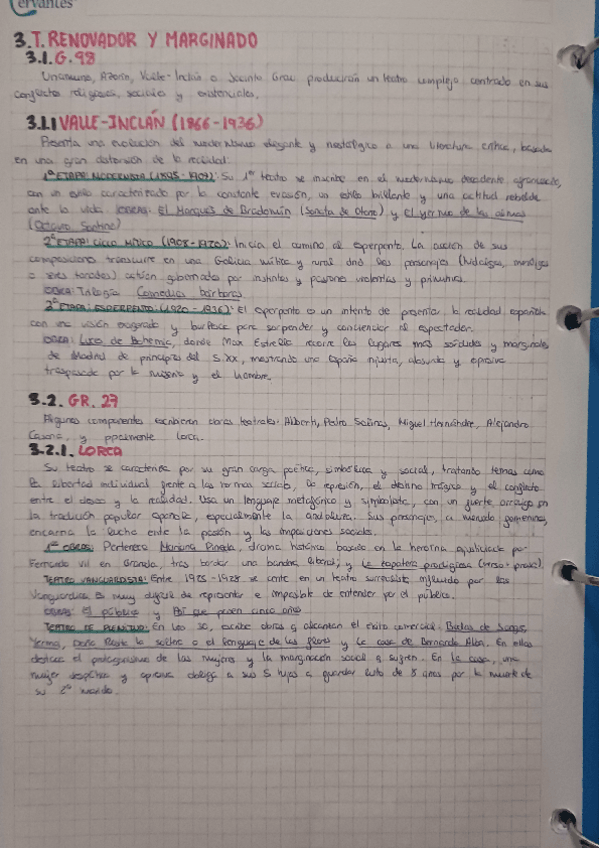 ervantes
3. T. RENOVADOR Y MARGINADO
3.1. G. 98
Unamuno, Azorín, Valle-Inclán o Jacinto Grau producirán un teatro complejo, centrado en sus
conflictos religiosos, sociales y existenciales.
3.1.1 VALLE-INCLÁN (1866-1936)
Presenta una evolución del modernismo elegante y nostálgico a una literatura crítica, basada
en una gran distorsión de la realidad:
1ª ETAPA: MODERNISTA: Su 1er teatro se inscribe en el modernismo decadente,
con un estilo caracterizado por la constante evasión, un estilo brillante y una actitud rebelde
ante la vida. OBRAS: El Marqués de Bradomín (Sonata de Otoño) y El yermo de las almas
(Octavio Santino)
2ª ETAPA: CICLO MÍTICO: Inicia el camino al esperpento. La acción de sus
composiciones transcurre en una Galicia mítica y rural dnd los personajes (hidalgos, mendigos
o seres tarados) están gobernados por instintos y pasiones violentas y primitivas.
OBRA: Trilogía Comedias bárbaras
3ª ETAPA: ESPERPENTO (1920-1936): El esperpento es un intento de presentar la realidad española
con una visión exagerada y burlesca para sorprender y concienciar al espectador.
OBRA: Luces de Bohemia, donde Max Estrella recorre los lugares más sórdidos y marginales
de Madrid de principios del S.XX, mostrando una España injusta, absurda y opresiva
traspasada por la miseria y el hambre.
3.2. GR. 27
Algunos componentes escribieron obras teatrales: Alberti, Pedro Salinas, Miguel Hernández, Alejandro
Casona, y ppalmente Lorca.
3.2.1. LORCA
Su teatro se caracteriza por su gran carga poética, simbólica y social, tratando temas como
la libertad individual frente a las normas sociales, la represión, el destino trágico y el conflicto
entre el deseo y la realidad. Usa un lenguaje metafórico y simbolista, con un fuerte arraigo en
la tradición popular española, especialmente la andaluza. Sus personajes, a menudo femeninos,
encarnan la lucha entre la pasión y las imposiciones sociales.
1as OBRAS: Pertenece Mariana Pineda, drama histórico basado en la heroína ajusticiada por
Fernando VII en Granada, tras bordar una bandera liberal; y La zapatera prodigiosa (verso + prosa).
TEATRO VANGUARDISTA: Entre 1925-1928 se centra en un teatro surrealista influido por las
Vanguardias. Es muy difícil de representar e imposible de entender por el público.
OBRAS: El público y Así que pasen cinco años
TEATRO DE PLENITUD: En los 30, escribe obras q alcanzan el éxito comercial: Bodas de Sangre,
Yerma, Doña Rosita la soltera o el lenguaje de las flores y La casa de Bernarda Alba. En ellas
destaca el protagonismo de las mujeres y la marginación social q sufren. En La casa, una
mujer despótica y opresiva obliga a sus 5 hijas a guardar luto de 8 años por la muerte de
su 2º marido.